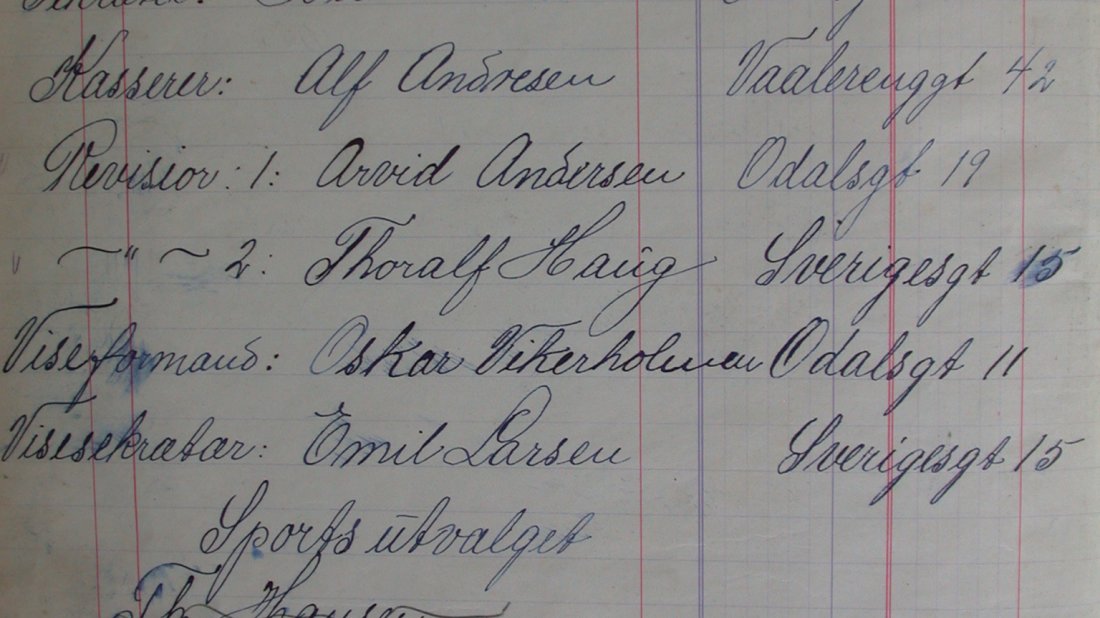 Kasserer: Alf Andresen Vaalerenggt 42
Revisior: 1: Arvid Andersen Odalsgt 19
~ " ~ 2: Thoralf Haug Sverigesgt 15
Viseformand: Oskar Vikerholmen Odalsgt 11
Visesekratær: Emil Larsen Sverigesgt 15
Sports utvalget
Th. Hansen